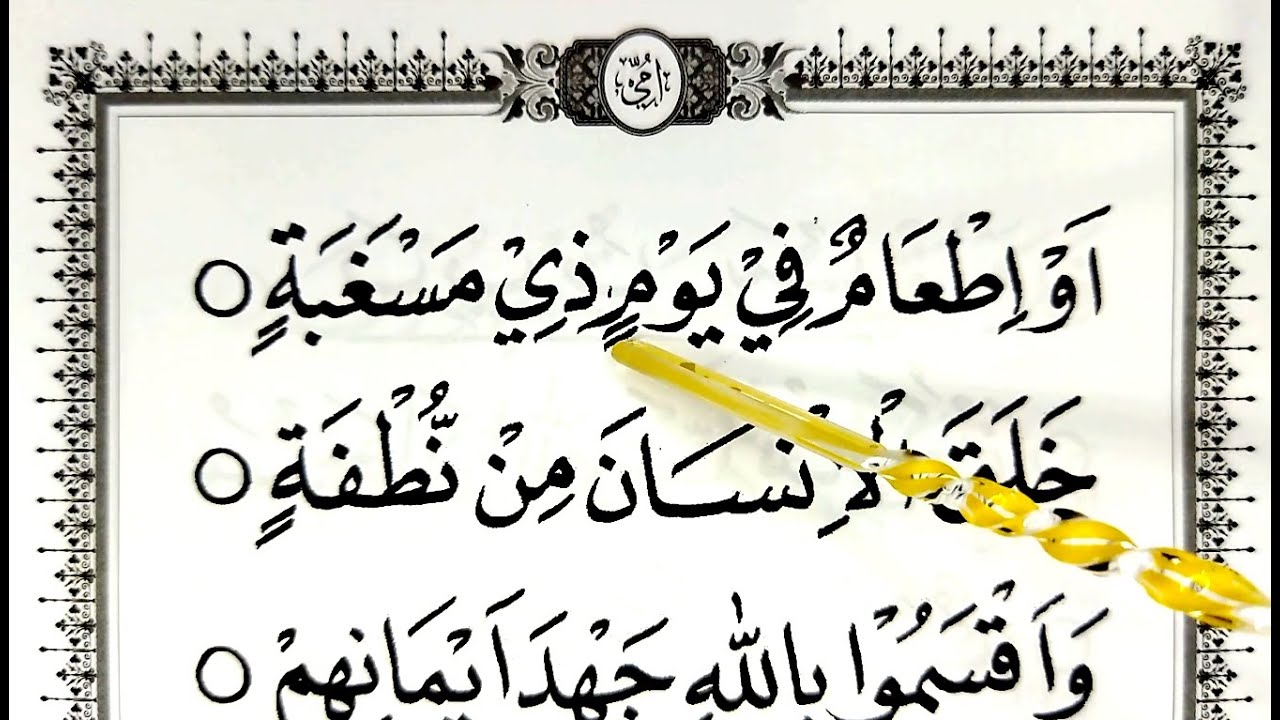 اُمِّيْ
اَوْ اِطْعَامٌ فِيْ يَوْمٍ ذِيْ مَسْغَبَةٍ ○
خَلَقَ الْاِنْسَانَ مِنْ نُّطْفَةٍ ○
وَاَقْسَمُوْا بِاللّٰهِ جَهْدَ اَيْمَانِهِمْ ○